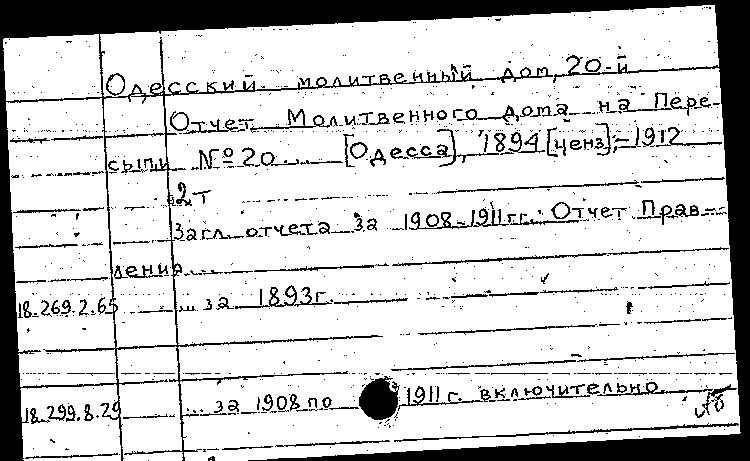 Одесский молитвенный дом, 20-й
Отчет Молитвенного дома на Пере-
сыпи № 20 ... [Одесса], 1894 [ценз],-1912
2 т
Загл. отчета за 1908-1911 гг.: Отчет Прав-
ления...
18.269.2.65 ... за 1893 г.
18.299.8.29 ... за 1908 по 1911 г. включительно.